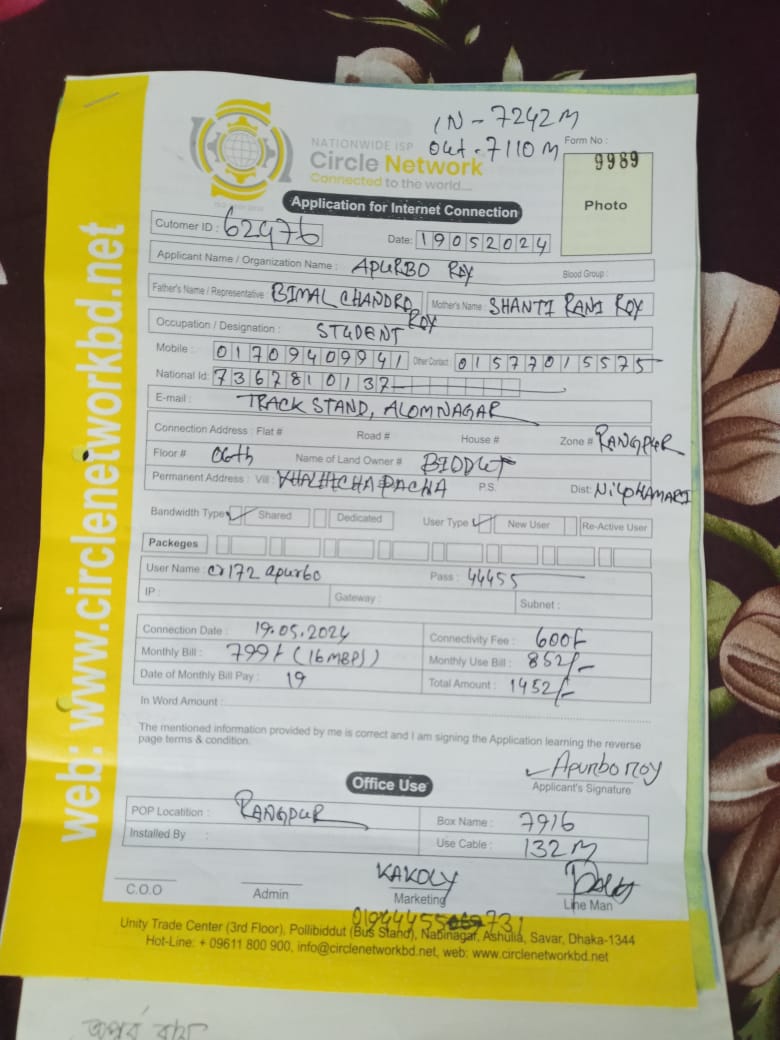 IN - 7242 M
Out - 7110 M
NATIONWIDE ISP
Circle Network
Connected to the world....
Form No :
9989
Photo
Application for Internet Connection
Cutomer ID : 62476
Date: 19052024
Applicant Name / Organization Name : APURBO ROY Blood Group :
Father's Name / Representative BIMAL CHANDRO ROY Mother's Name : SHANTI RANI ROY
Occupation / Designation : STUDENT
Mobile : 01709409941 Other Contact 01577015575
National Id: 7367810137
E-mail :
TRACK STAND, ALOMNAGAR
Connection Address : Flat # Road # House # Zone # RANGPUR
Floor # 06th Name of Land Owner # BIDDUT
Permanent Address : Vill : P.S. Dist: NilpHAMARI
Bandwidth Type ✓ Shared Dedicated User Type ✓ New User Re-Active User
Packeges
User Name : cr172 apurbo Pass : 44455
IP : Gateway : Subnet :
Connection Date : 19.05.2024 Connectivity Fee : 600/-
Monthly Bill : 799/- (16 MBPS) Monthly Use Bill : 852/-
Date of Monthly Bill Pay : 19 Total Amount : 1452/-
In Word Amount :
The mentioned information provided by me is correct and I am signing the Application learning the reverse
page terms & condition.
Apurbo roy
Applicant's Signature
Office Use
POP Locatition : RANGPUR Box Name : 7916
Installed By : Use Cable : 132 M
KAKOLY
C.O.O Admin Marketing Line Man
Unity Trade Center (3rd Floor), Pollibiddut (Bus Stand), Nabinagar, Ashulia, Savar, Dhaka-1344
Hot-Line: + 09611 800 900, info@circlenetworkbd.net, web: www.circlenetworkbd.net
web: www.circlenetworkbd.net
অপূর্ব রায়